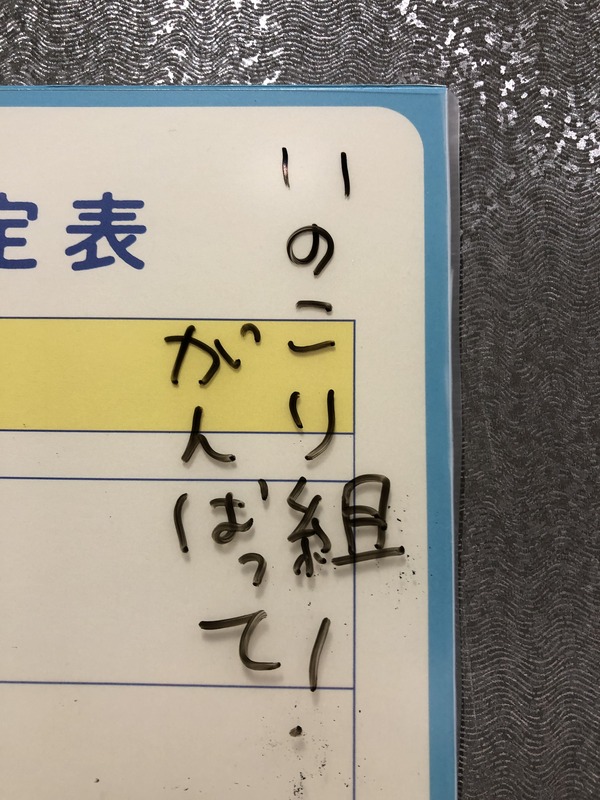 定表
いのこり組!
がんばって